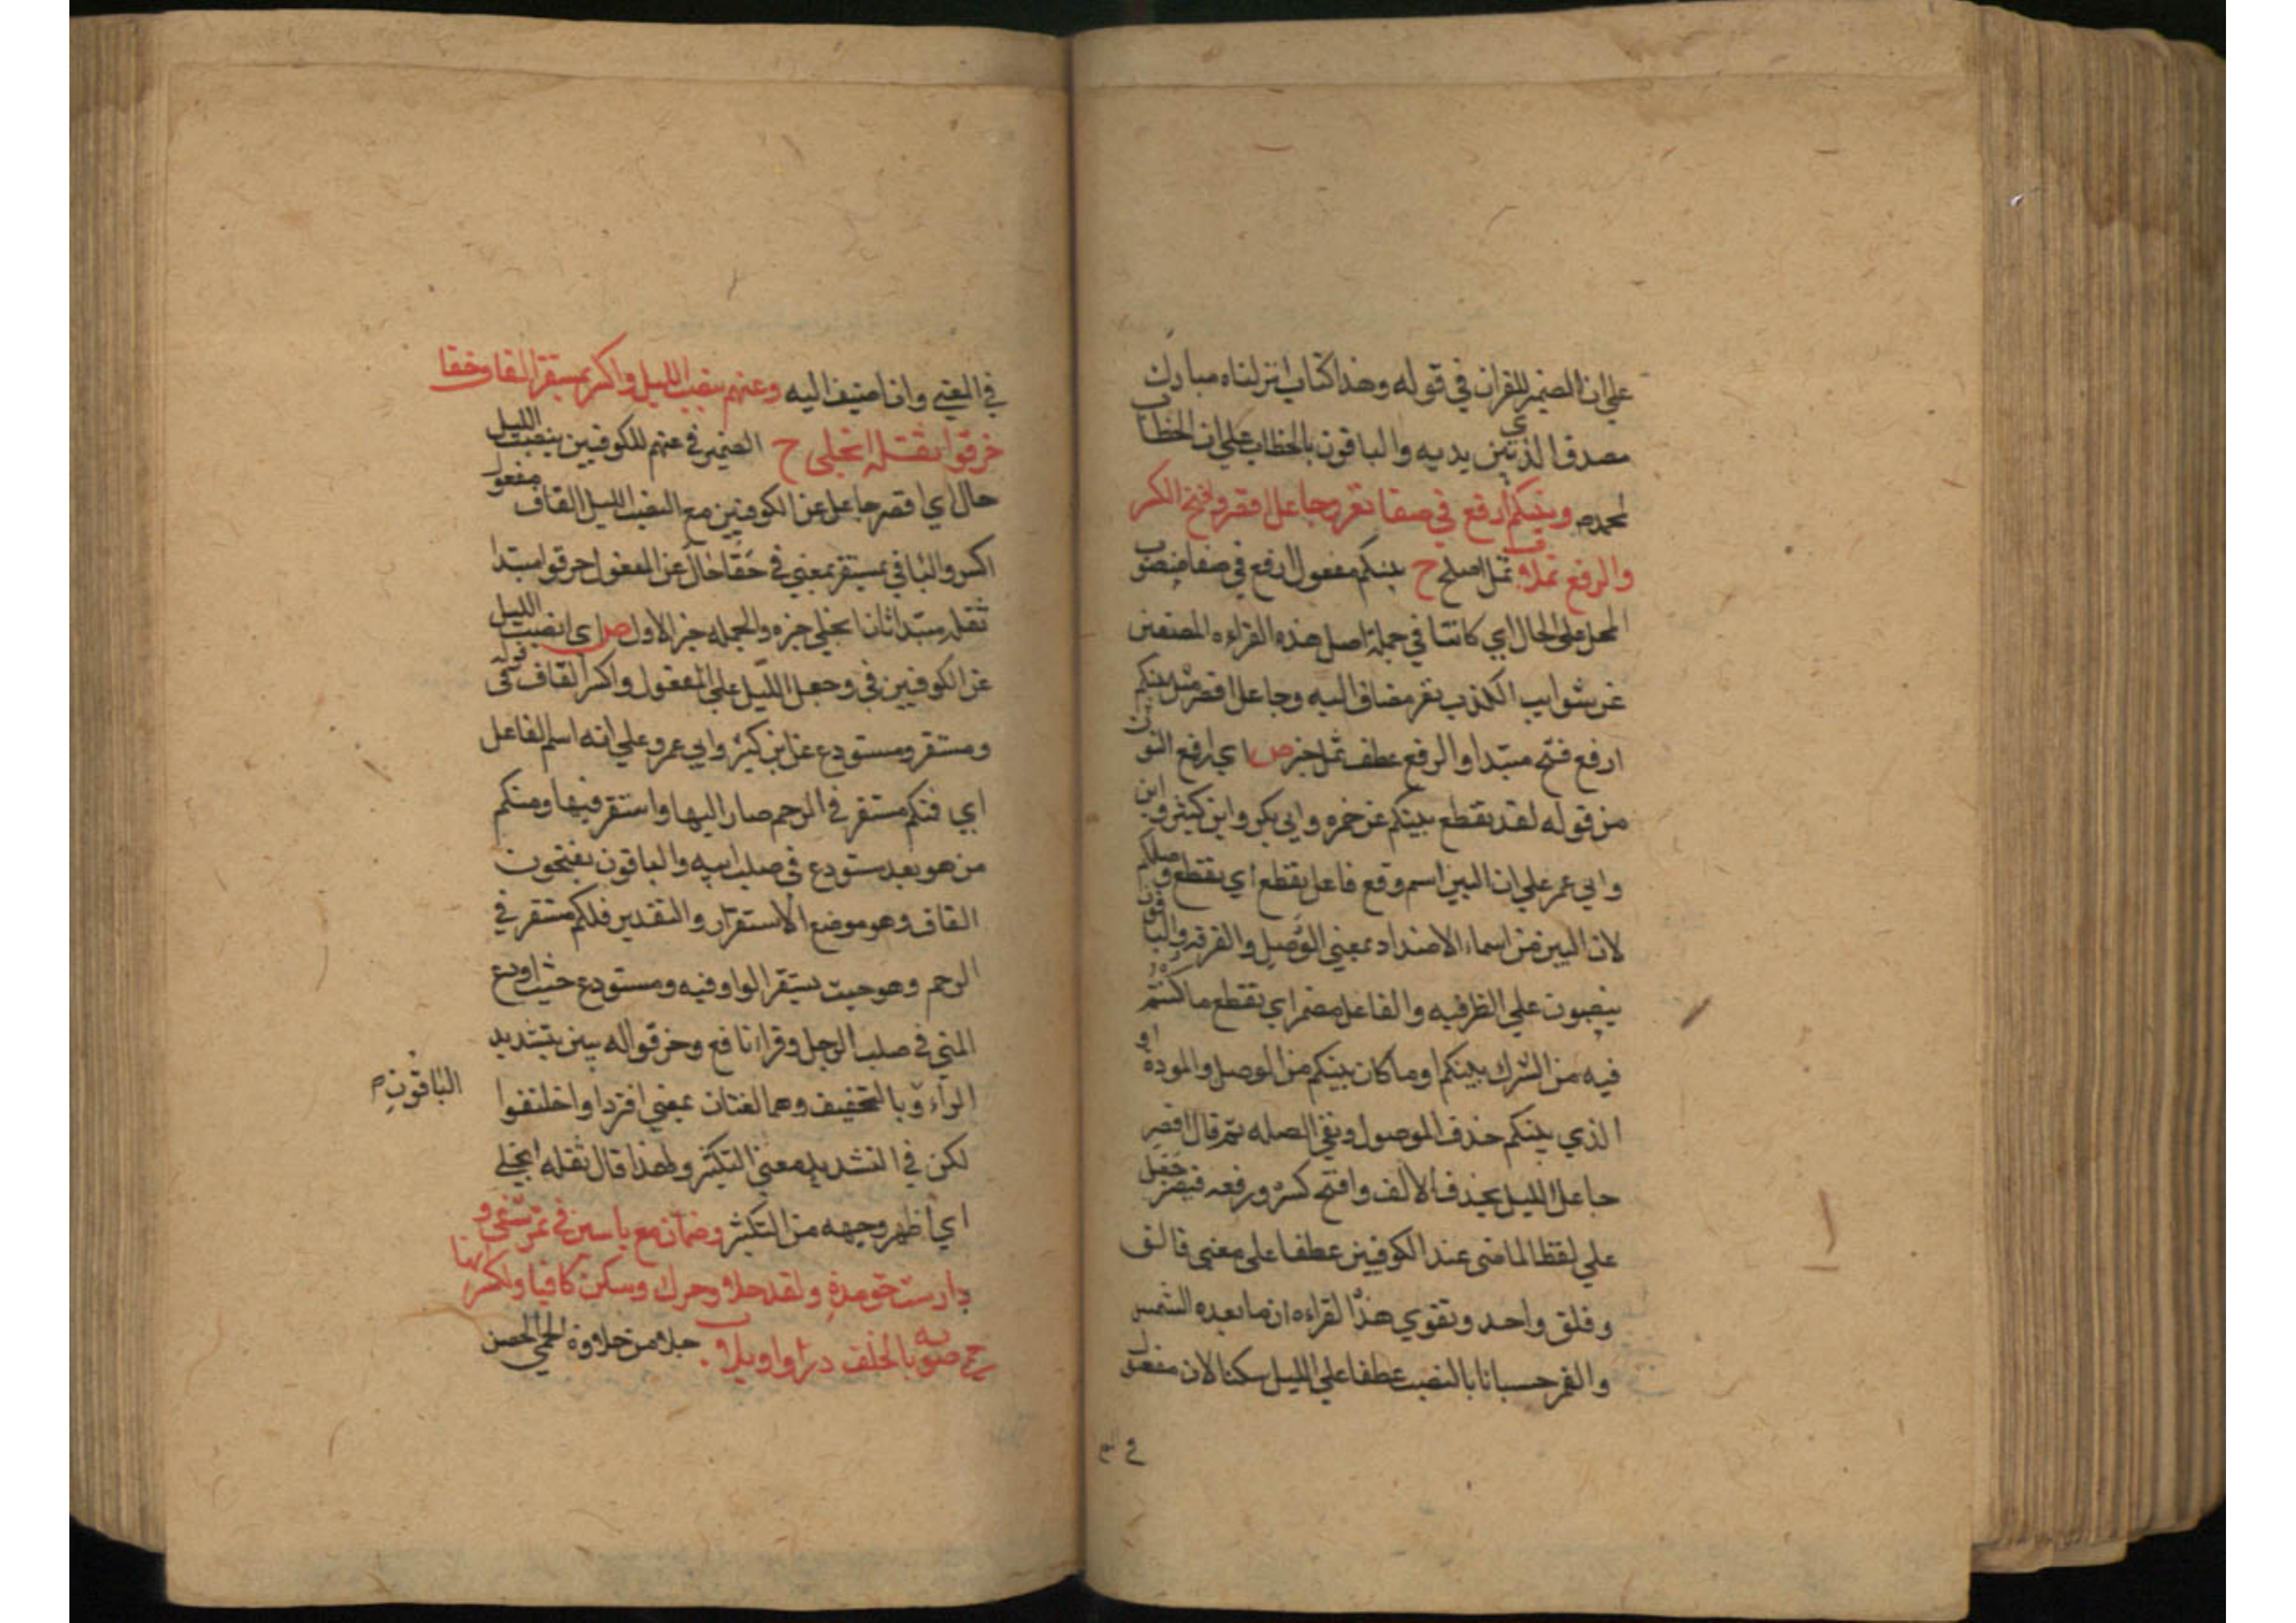 علي ان الضمير للقران في قوله وهذا كتاب انزلناه مبارك
مصدق الذي بين يديه والباقون بالخطاب علي ان الخطاب
لمحمدص وبينكم ارفع في صفا نفر وجاعل اقصر وفتح الكسر
والرفع ثملا ثمل اصلح ح بينكم مفعول ارفع في صفا منصوب
المحل علي الحال اي كائنا في جملة اصل هذه القراءه المصنفين
عن شوايب الكذب نفر مضاف اليه وجاعل اقصر مثل بينكم
ارفع فتح مبتدا والرفع عطف ثمل خبر ص اي ارفع النون
من قوله لقد تقطع بينكم عن حمزه وابي بكر وابن كثير وابن
وابي عمر علي ان البين اسم وقع فاعل تقطع اي تقطع وصلكم
لان البين من اسماء الاضداد بمعني الوصل والفرقه والباقون
ينصبون علي الظرفيه والفاعل مضمر اي تقطع ما كنتم
فيه من الشرك بينكم او ما كان بينكم من الوصل والموده او
الذي بينكم حذف الموصول وبقي الصله ثم قال اقصر
جاعل الليل بحذف الالف وافتح كسره ورفعه فيصر جعل
علي لفظ الماضي عند الكوفيين عطفا علي معني فالق
وفلق واحد وتقوي هذا القراءه ان ما بعده الشمس
والقمر حسبانا بالنصب عطفا علي الليل سكنا لان مفعول
في المعني وان اضيف اليه وعنهم بنصب الليل واكسر بمستقر القاف حقا
خرقوا ثقله انجلي ح الضمير في عنهم للكوفيين بنصب الليل
حال اي اقصر جاعل عن الكوفيين مع النصب الليل القاف مفعول
اكسر والبا في بمستقر بمعني في حقا حال عن المفعول خرقوا مبتدا
ثقله مبتدا ثان انجلي خبره والجمله خبر الاول ص اي انصب الليل
عن الكوفيين في وجعل الليل علي المفعول واكسر القاف في قوله
ومستقر ومستودع عن ابن كثير وابي عمرو علي انه اسم الفاعل
اي فمنكم مستقر في الرحم صار اليها واستقر فيها ومنكم
من هو بعد مستودع في صلب ابيه والباقون يفتحون
القاف وهو موضع الاستقرار والتقدير فلكم مستقر في
الرحم وهو حيث يستقر الواو فيه ومستودع حيث اودع
المني في صلب الرجل وقرا نافع وخرقوا له بنين بتشديد
الراء وبالتخفيف وهما لغتان بمعني افتروا واختلفوا
الباقون ص
لكن في التشديد معني التكثير ولهذا قال ثقله انجلي
اي اظهر وجهه من التكثير وضمان مع ياسين في ثمر شفي و
دارست حق مده ولقد حلا وحرك وسكن كافيا واكسر انها
حمي صوبه بالخلف در واوبلا حلا من حلاوة الحمي الحصن